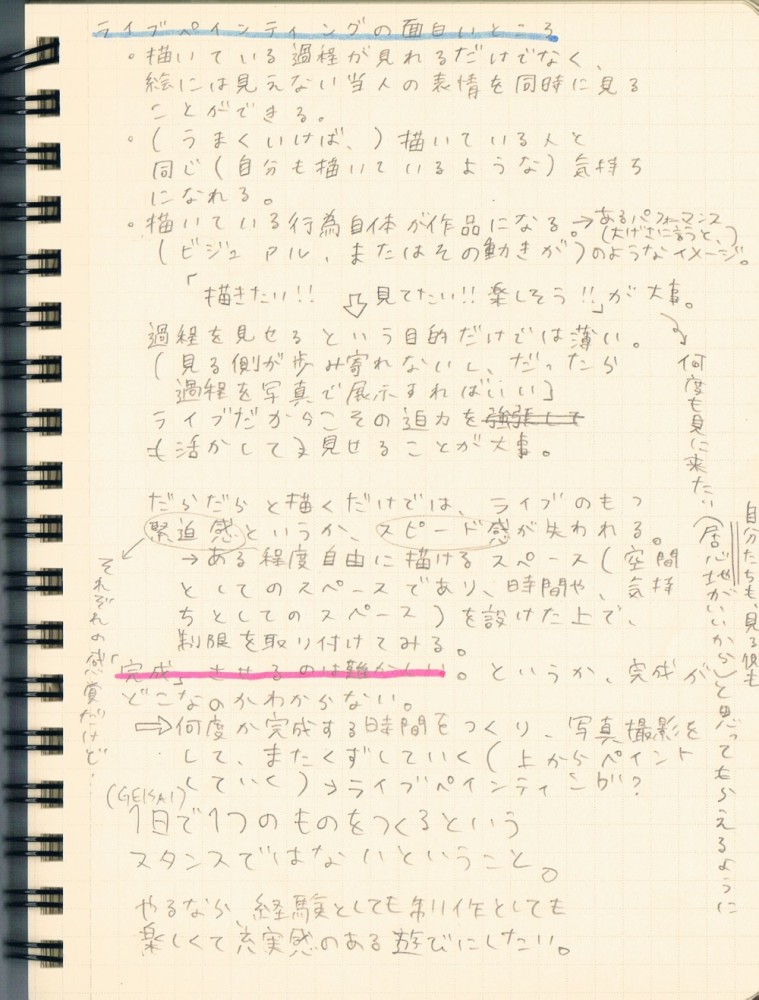 ライブペインティングの面白いところ
・描いている過程が見れるだけでなく、
絵には見えない当人の表情を同時に見る
ことができる。
・(うまくいけば、)描いている人と
同じ(自分も描いているような)気持ち
になれる。
・描いている行為自体が作品になる。→あるパフォーマンス
(大げさに言うと、)
(ビジュアル、またはその動きが)のようなイメージ。
「描きたい!! 見てたい!!楽しそう!!」が大事。
過程を見せるという目的だけでは薄い。
(見る側が歩み寄れないし、だったら
過程を写真で展示すればいい)
ライブだからこその迫力を強張して
も活かして見せることが大事。
だらだらと描くだけでは、ライブのもつ
緊迫感というか、スピード感が失われる。
→ある程度自由に描けるスペース(空間
としてのスペースであり、時間や、気持
ちとしてのスペース)を設けた上で、
制限を取り付けてみる。
「完成」させるのは難かしい。というか、完成が
どこなのかわからない。
⇒何度か完成する時間をつくり、写真撮影を
して、またくずしていく(上からペイント
していく)→ライブペインティング?
(GEISAI)
1日で1つのものをつくるという
スタンスではないということ。
やるなら、経験としても制作としても
楽しくて充実感のある遊びにしたい。
何度も見に来たい(居心地がいいから)と思ってもらえるように
自分たちも、見る側も
それぞれの感覚だけど…